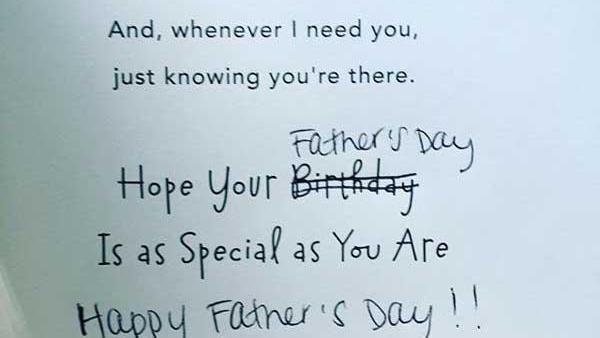 And, whenever I need you,
just knowing you're there.
Father's Day
Hope Your Birthday
Is as Special as You Are
Happy Father's Day!!